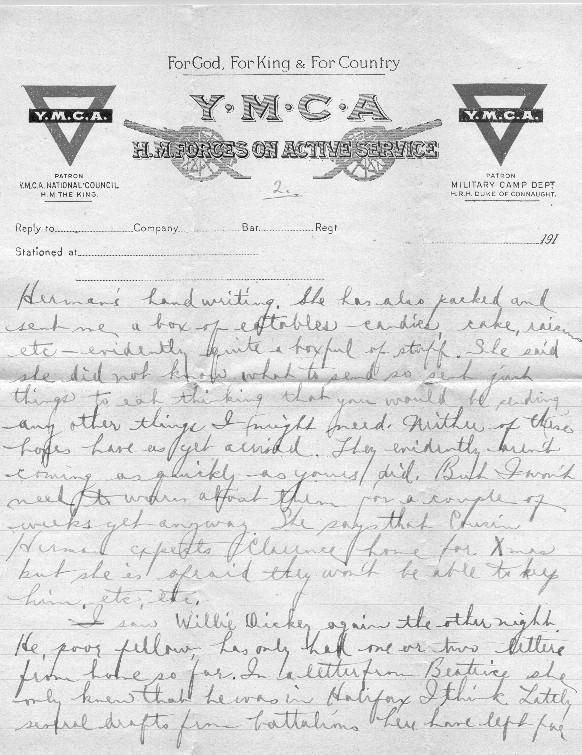 For God, For King & For Country
Y·M·C·A
H.M. FORCES ON ACTIVE SERVICE
Y.M.C.A.
PATRON
Y.M.C.A. NATIONAL COUNCIL
H.M. THE KING.
Y.M.C.A.
PATRON
MILITARY CAMP DEPT
H.R.H. DUKE OF CONNAUGHT.
2.
Reply to Company Bar. Regt
191
Stationed at
Herman's handwriting. She has also packed and
sent me a box of eatables - candies, cake, raisins
etc - evidently quite a boxful of stuff. She said
she did not know what to send so sent just
things to eat thinking that you would be sending
any other things I might need. Neither of these
boxes have as yet arrived. They evidently aren't
coming as quickly as yours did. But I won't
need to worry about them for a couple of
weeks yet anyway. She says that Cousin
Herman expects Clarence home for Xmas
but she is afraid they won't be able to keep
him, etc, etc.
I saw Willie Dickey again the other night
He, poor fellow, has only had one or two letters
from home so far. In a letter from Beatrice she
only knew that he was in Halifax I think. Lately
several drafts from battalions here have left for